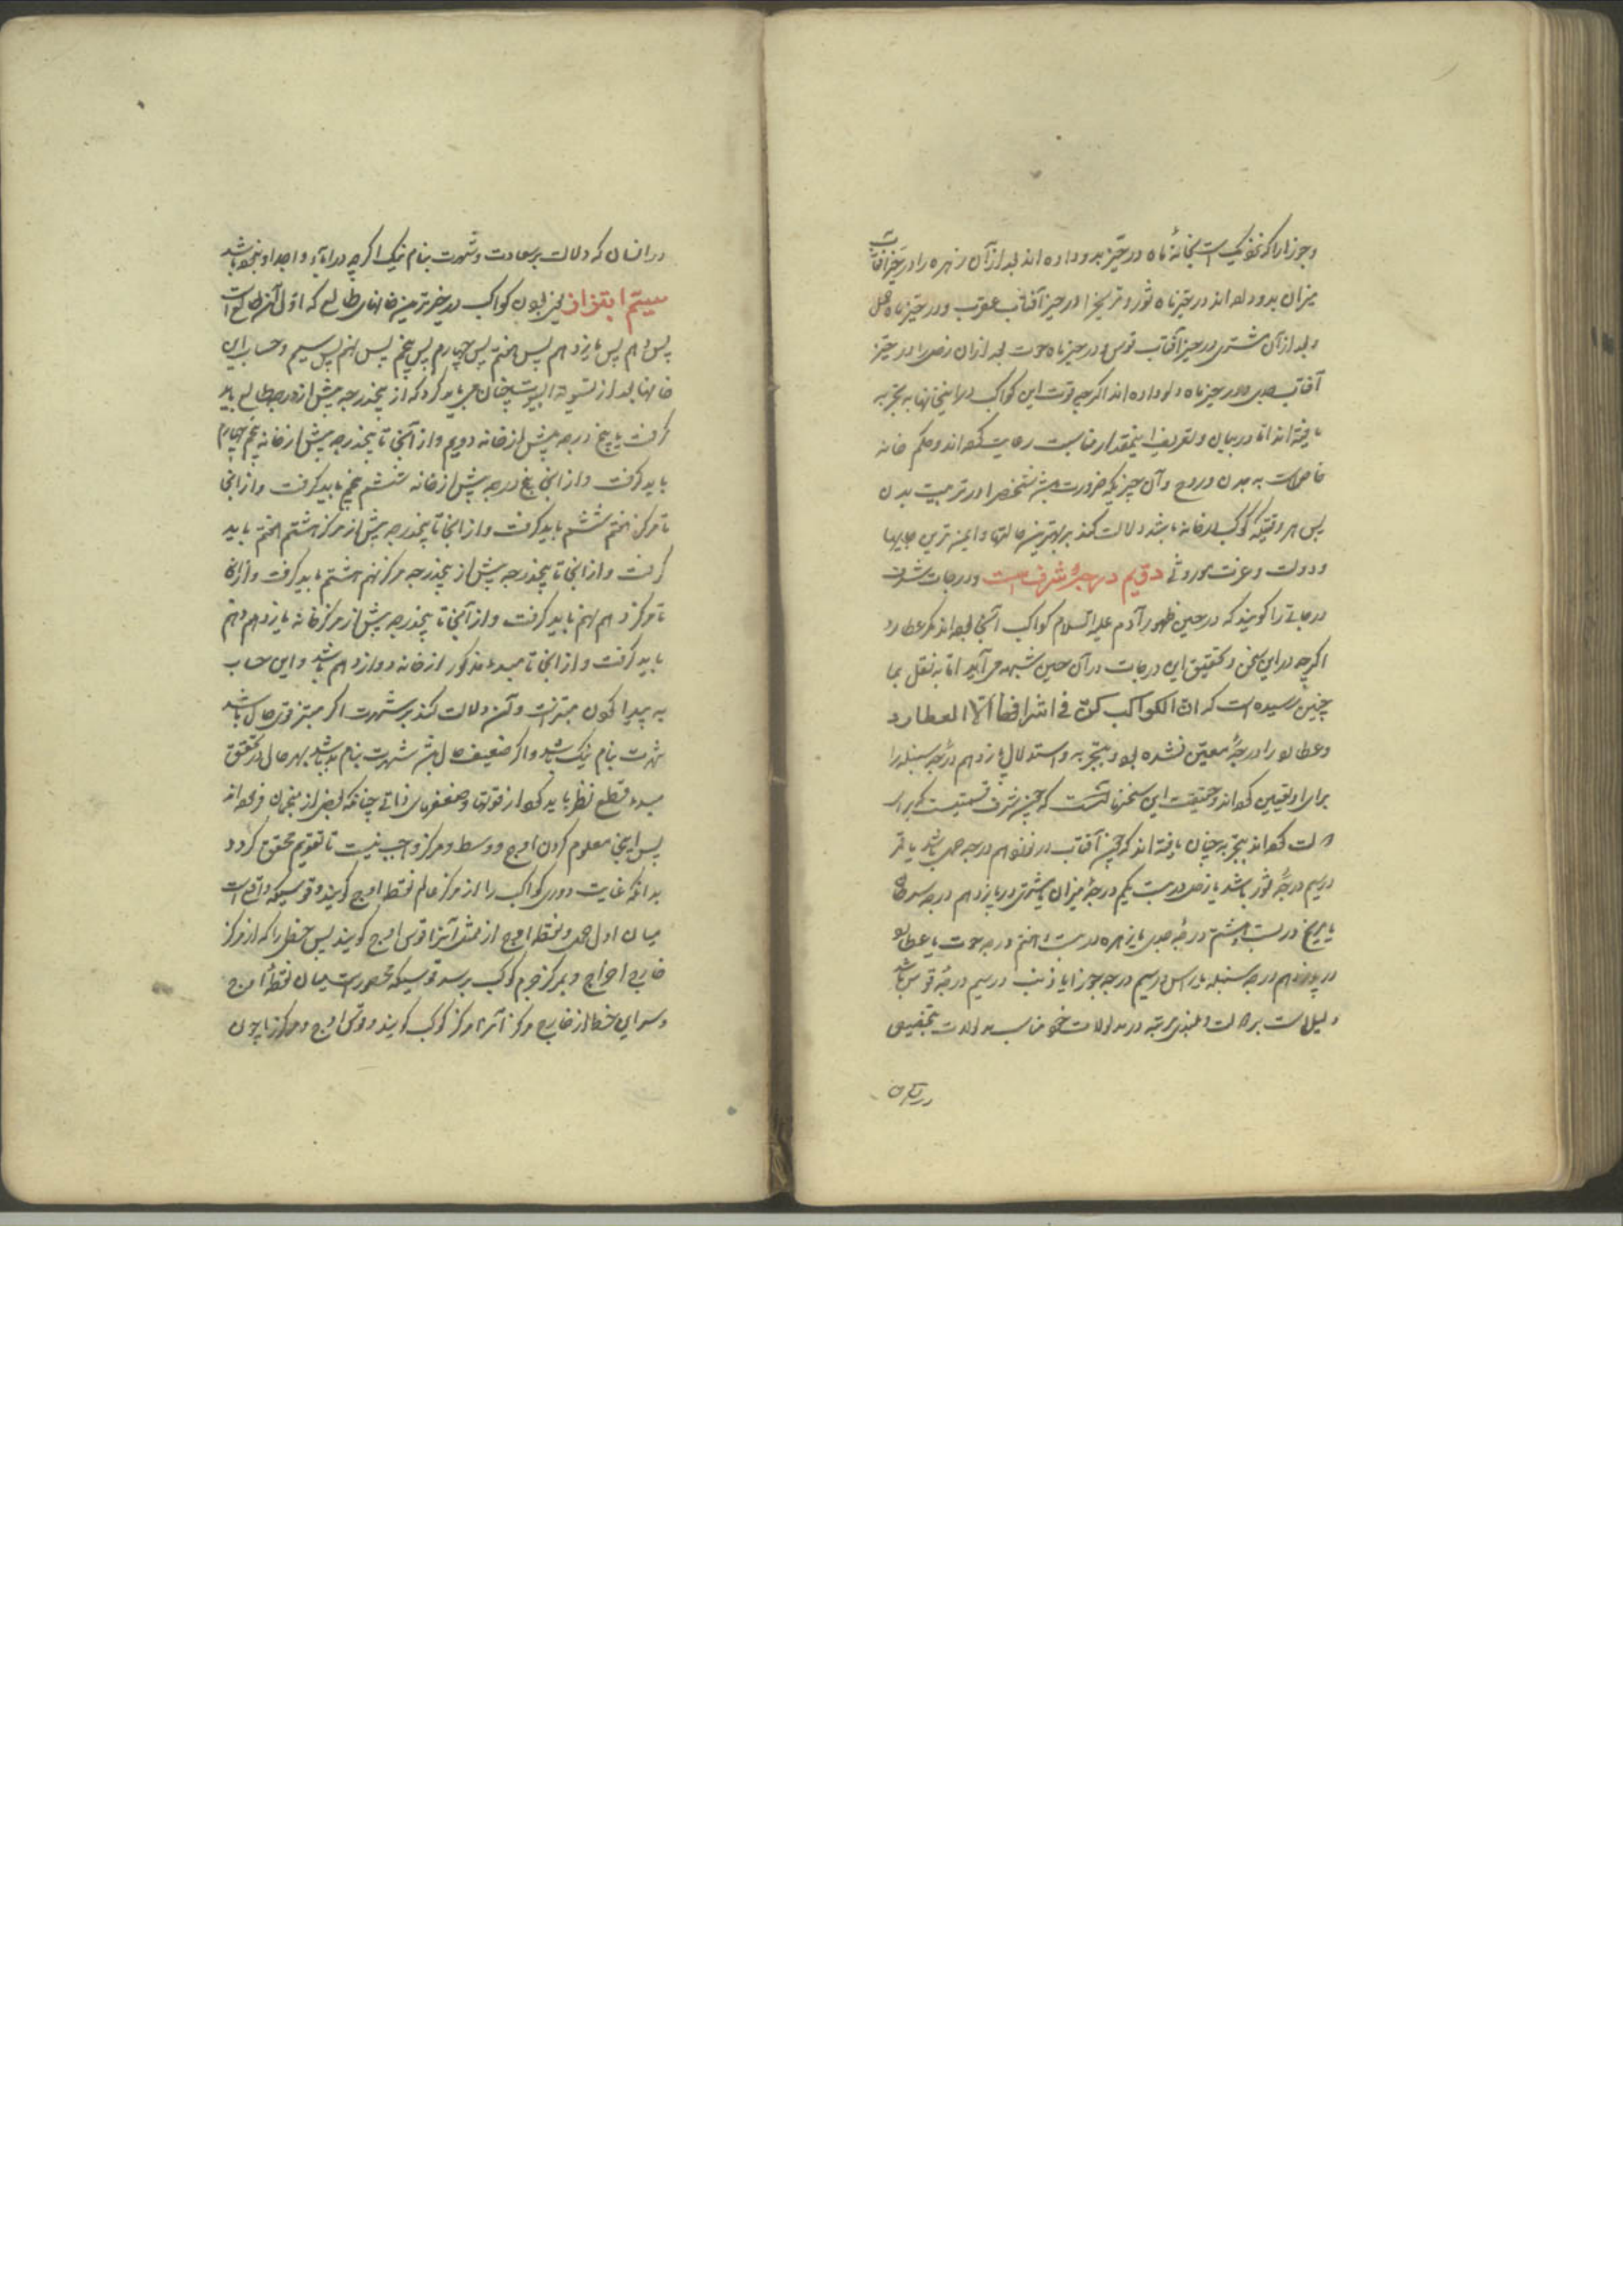 وجوزا را که نزدیک است بخانهٔ ماه در حیّز بدو داده اند بعد از آن زهره را در حیّز آفتاب
میزان بدو داده اند در حیّز ماه ثور و مریخ را در حیز آفتاب عقرب و در حیّز ماه حمل
و بعد از آن مشتری در حیز آفتاب قوس و در حیز ماه حوت بعد ازان زحل را در حیّز
آفتاب جدی و در حیز ماه دلو داده اند اگر چه قوت این کواکب در این خانها به تجربه
یافته اند اما در بیان و تعریف اینمقدار مناسبت رعایت کرده اند و حکم خانه
خاص است به بدن و روح و آن چیزیکه ضرورت باشد شخص را در تربیت بدن
پس هر وقتیکه کوکب در خانه باشد دلالت کند بر بهترین حالتها و ایمنه ترین جایها
و دولت و عزت موروثی دویم درجهٔ شرف است و درجات شرف
درجاتی را گویند که در حین ظهور آدم علیه السلام کواکب آنجا بوده اند مگر عطارد
اگرچه در این سخن و تحقیق این درجات در آن حین شبهه می آید اما به نقل بما
چنین رسیده است که انّ الکواکب کلّ فی اشرافها الّا العطارد
و عطارد را درجهٔ معیّن نشده بود و بتجربه و استدلال پانزدهم درجهٔ سنبله را
برای او تعیین کرده اند و حقیقت این سخن آنست که چون شرف قسمتیست که برای
کرده اند بتجربه چنان یافته اند که چون آفتاب در نوزدهم درجه حمل باشد یا قمر
در سیم درجهٔ ثور باشد یا زحل در بیست یکم درجهٔ میزان یا مشتری در پانزدهم درجه سرطان
یا مریخ در بیست و هشتم درجهٔ جدی یا زهره در بیست و هفتم درجه حوت یا عطارد
در پانزدهم درجه سنبله یا راس در سیم درجه جوزا یا ذنب در سیم درجهٔ قوس باشد
دلیل است بر و بلندی مرتبه در مدلولات خود مناسب مدلولات بتخصیص
در انسان
در انسان که دلالت بر سعادت و شهرت بنام نیک اگر چه در آباء و اجداد او نبوده باشد
سیّم ابتزاز یعنی بودن کواکب در خیرترین خانهای طالع که اوّل آن طالع است
پس دهم پس یازدهم پس هفتم پس چهارم پس پنجم پس نهم پس سیم و حساب این
خانها بعد از تسویة البیوت چنان می باید کرد که از پنجدرجه پیش از درجه طالع باید
گرفت تا پنج درجه پیش از خانه دویم و از آنجا تا پنجدرجه پیش از خانه پنجم چهارم
باید گرفت و از انجا پنج درجه پیش از خانه ششم پنجم باید گرفت و از انجا
تا مرکز هفتم ششم باید گرفت و از انجا تا پنجدرجه پیش از مرکز هشتم هفتم باید
گرفت و از انجا تا پنجدرجه پیش از پنجدرجه مرکز نهم هشتم باید گرفت و از انجا
تا مرکز دهم نهم باید گرفت و از آنجا تا پنجدرجه پیش از مرکز خانه یازدهم دهم
باید گرفت و از انجا تا مبدء مذکور از خانه دوازدهم باشد و این حساب
به پیدا کردن مبتزّ است و آن دلالت کند بر شهرت اگر مبتز قوی حال باشد
شهرت بنام نیک باشد و اگر ضعیف حال باشد شهرت بنام بد باشد بهر حال در تحقق
مبدء قطع نظر باید کرد از قوتها و ضعفهای ذاتی چنانکه بعضی از منجمان فرموده اند
پس اینجا معلوم کردن اوج و وسط و مرکز واجب نیست تا تقویم محقق گردد
بدانکه غایت دوری کواکب را از مرکز عالم نقطه اوج گویند و قوسیکه واقع است
میان اول حمل و نقطه اوج از ممثل آنرا قوس اوج گویند پس خطی را که از مرکز
خارج اخراج و بمرکز جرم کوکب برسد قوسیکه محصور است میان نقطهٔ اوج
و سر این خط از خارج مرکز آنرا مرکز کوکب گویند و قوس اوج و مرکز را چون